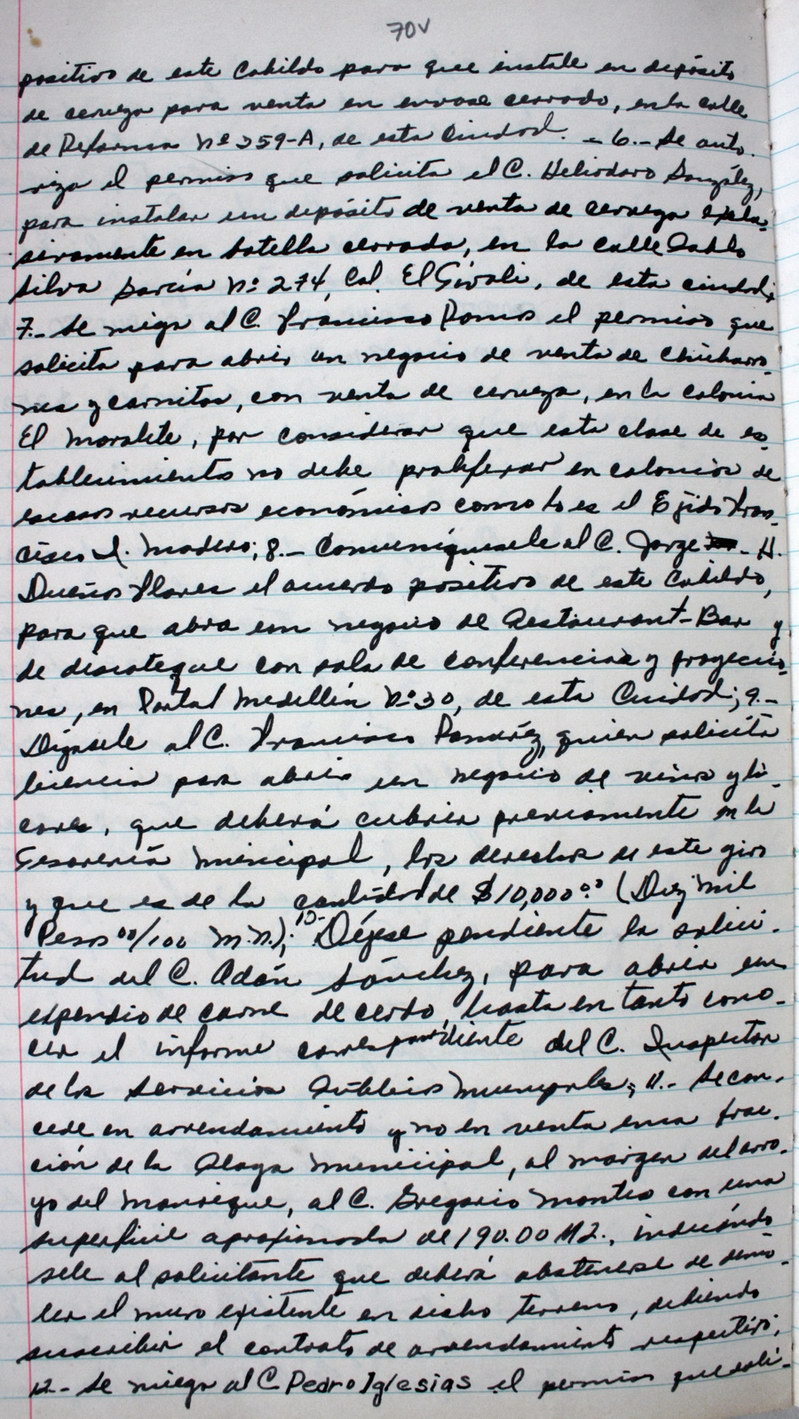 70v
positivo de este Cabildo para que instale un depósito
de cerveza para venta en envase cerrado, en la calle
de Reforma Nº 359-A, de esta Ciudad. - 6.- Se auto-
riza el permiso que solicita el C. Heliodoro González,
para instalar un depósito de venta de cerveza exclu-
sivamente en botella cerrada, en la calle Pablo
Silva García Nº 274, Col. El Tívoli, de esta ciudad;
7.- Se niega al C. Francisco Ramos el permiso que
solicita para abrir un negocio de venta de chicharro-
nes y carnitas, con venta de cerveza, en la colonia
El Moralete, por considerar que esta clase de es-
tablecimientos no debe proliferar en colonias de
escasos recursos económicos como lo es el Ejido Fran-
cisco I. Madero; 8.- Comuníquesele al C. Jorge H.
Dueñas Flores el acuerdo positivo de este Cabildo,
para que abra un negocio de Restaurant-Bar y
de discoteque con sala de conferencias y proyeccio-
nes, en Portal Medellín Nº 30, de esta Ciudad; 9.-
Dígasele al C. Francisco Ramírez, quien solicita
licencia para abrir un negocio de vinos y li-
cores, que deberá cubrir previamente en la
Tesorería Municipal, los derechos de este giro
y que es de la cantidad de $10,000.00 (Diez mil
Pesos 00/100 M.N.); 10- Déjese pendiente la solici-
tud del C. Adán Sánchez, para abrir un
expendio de carne de cerdo, hasta en tanto cono-
cer el informe correspondiente del C. Inspector
de los Servicios Públicos Municipales; 11.- Se con-
cede en arrendamiento y no en venta una frac-
ción de la Playa Municipal, al margen del arro-
yo del Manrique, al C. Gregorio Montes con una
superficie aproximada de 190.00 M2., indicándo
sele al solicitante que deberá abstenerse de demo-
ler el muro existente en dicho terreno, debiendo
suscribir el contrato de arrendamiento respectivo;
12.- Se niega al C. Pedro Iglesias el permiso que soli-